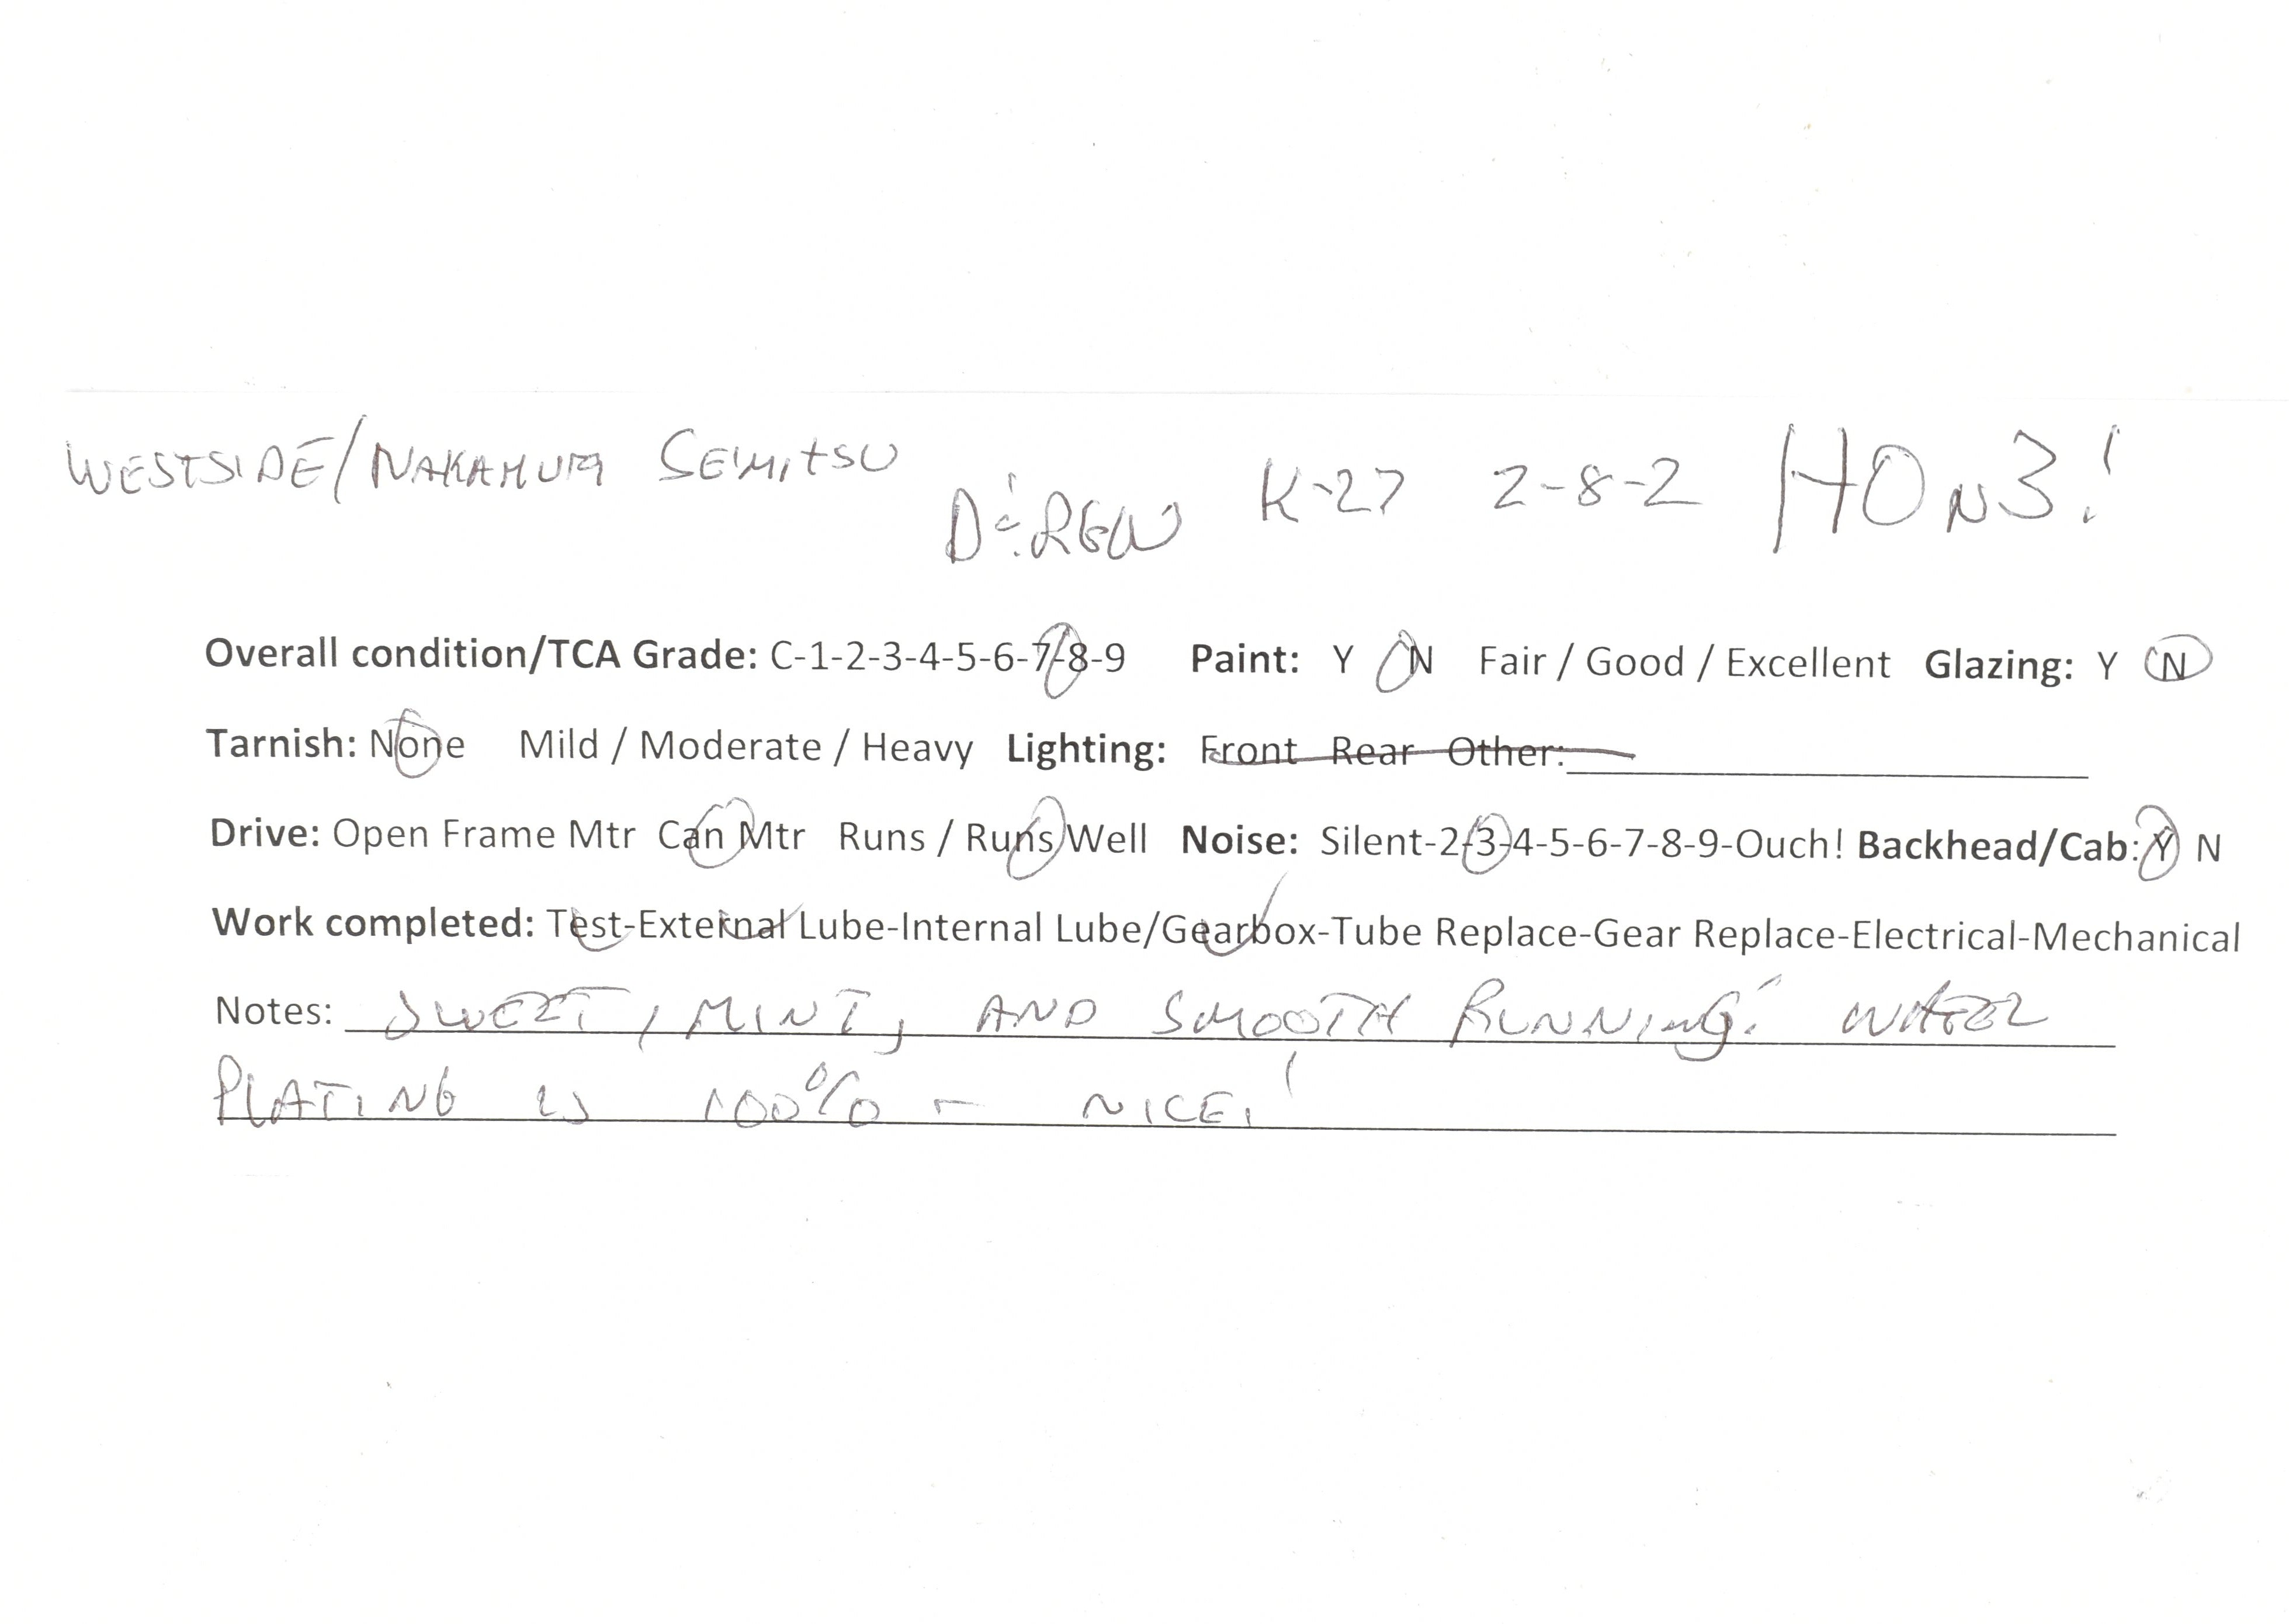 WESTSIDE/NAKAMURA SEIMITSU
D&RGW K-27 2-8-2 HOn3!
Overall condition/TCA Grade: C-1-2-3-4-5-6-7-8-9 Paint: Y N Fair / Good / Excellent Glazing: Y N
Tarnish: None Mild / Moderate / Heavy Lighting: Front Rear Other:
Drive: Open Frame Mtr Can Mtr Runs / Runs Well Noise: Silent-2-3-4-5-6-7-8-9-Ouch! Backhead/Cab: Y N
Work completed: Test-External Lube-Internal Lube/Gearbox-Tube Replace-Gear Replace-Electrical-Mechanical
Notes: SWEET, MINT, AND SMOOTH RUNNING!
PLATING IS 100% - NICE!